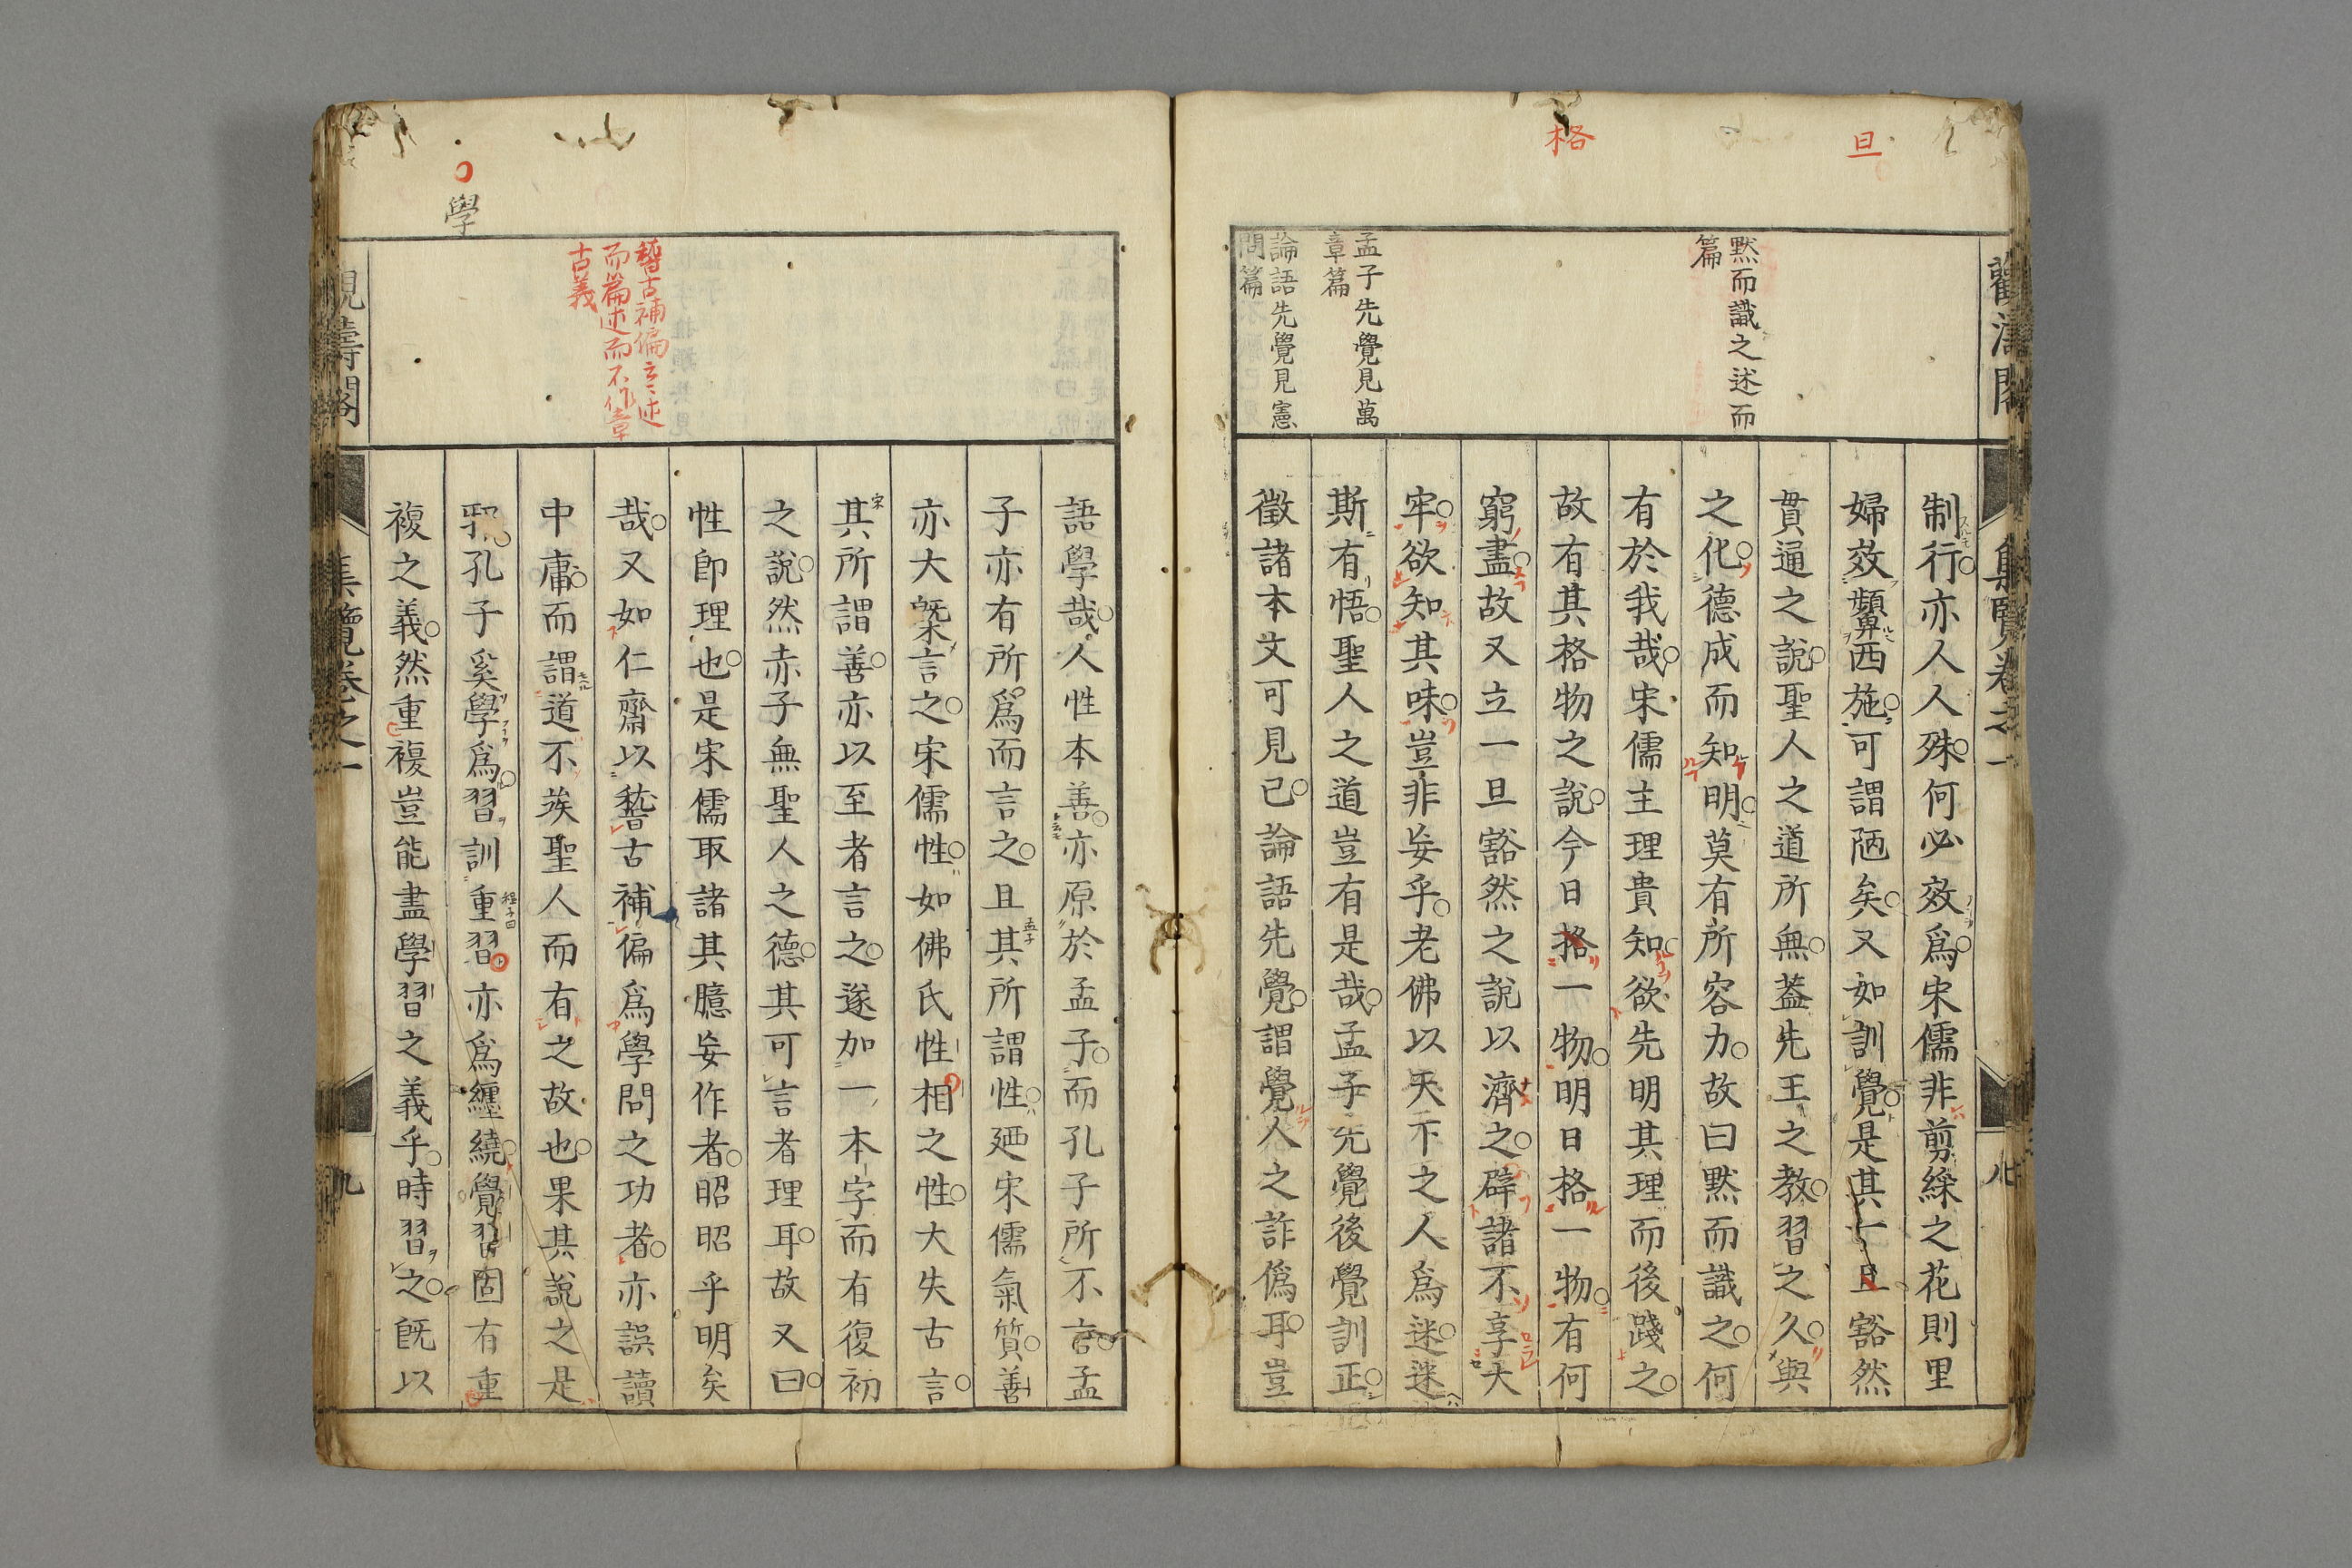 旦
格
默而識之述而
篇
孟子先覺見萬
章篇
論語先覺見憲
問篇
制行亦人人殊何必效爲宋儒非剪綵之花則里
婦效顰西施可謂陋矣又如訓覺是其一旦豁然
貫通之說聖人之道所無蓋先王之教習之久與
之化德成而知明莫有所容力故曰默而識之何
有於我哉宋儒主理貴知欲先明其理而後踐之
故有其格物之說今日格一物明日格一物有何
窮盡故又立一旦豁然之說以濟之辟諸不享大
牢欲知其味豈非妄乎老佛以天下之人爲迷迷
斯有悟聖人之道豈有是哉孟子先覺後覺訓正
徵諸本文可見已論語先覺謂覺人之詐僞耳豈
集覽卷之一
八
語學哉人性本善亦原於孟子而孔子所不言孟
子亦有所爲而言之且其所謂性廼宋儒氣質善
亦大槩言之宋儒性如佛氏性相之性大失古言
其所謂善亦以至者言之遂加一本字而有復初
之說然赤子無聖人之德其可言者理耳故又曰
性卽理也是宋儒取諸其臆妄作者昭昭乎明矣
哉又如仁齋以嵆古補偏爲學問之功者亦誤讀
中庸而謂道不竢聖人而有之故也果其說之是
邪孔子奚學爲習訓重習亦爲纏繞覺習固有重
複之義然重複豈能盡學習之義乎時習之旣以
稽古補偏之述
而篇述而不作章
古義
學
集覽卷之一
九